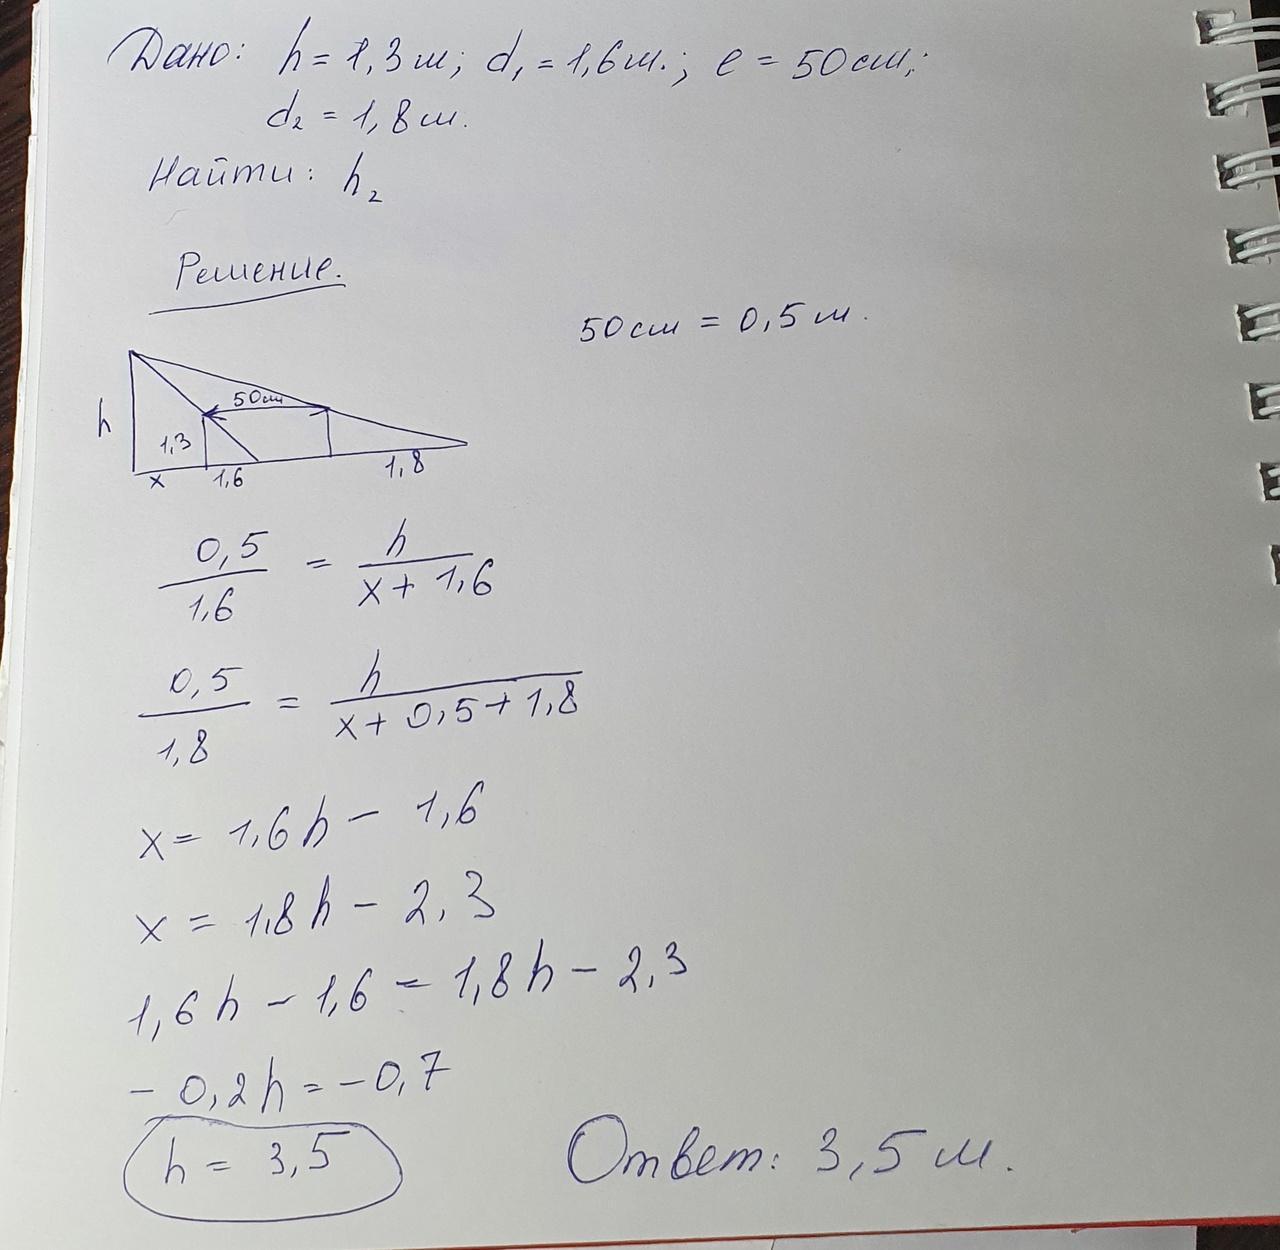 Дано: h = 1,3 м; d₁ = 1,6 м.; l = 50 см;
d₂ = 1,8 м.
Найти: h₂
Решение.
50 см = 0,5 м.
h
50 см
1,3
x 1,6 1,8
0,5/1,6 = h/(x + 1,6)
0,5/1,8 = h/(x + 0,5 + 1,8)
x = 1,6h - 1,6
x = 1,8h - 2,3
1,6h - 1,6 = 1,8h - 2,3
- 0,2h = - 0,7
h = 3,5
Ответ: 3,5 м.